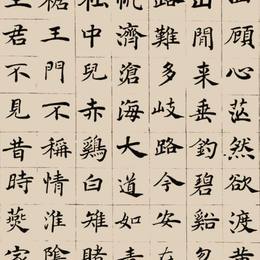 四顧心茫然欲渡黃
山閒来垂釣碧谿忽
路難多岐路今安在
帆濟滄海大道如青
社中兒赤雞白雉賭
裾王門不稱情淮陰
生君不見昔時燕家